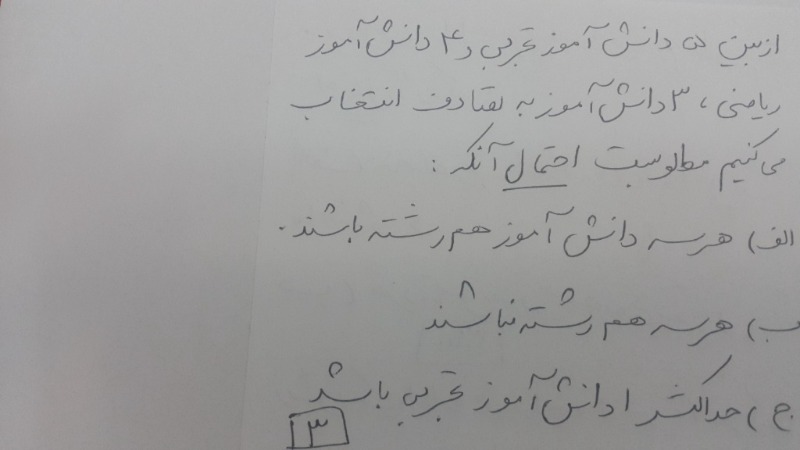 از بین ۵ دانش آموز تجربی و ۴ دانش آموز
ریاضی ، ۳ دانش آموز به تصادف انتخاب
می کنیم مطلوبست احتمال آنکه :
الف) هر سه دانش آموز هم رشته باشند .
ب) هر سه هم رشته نباشند
ج) حداکثر ۱ دانش آموز تجربی باشد
۳